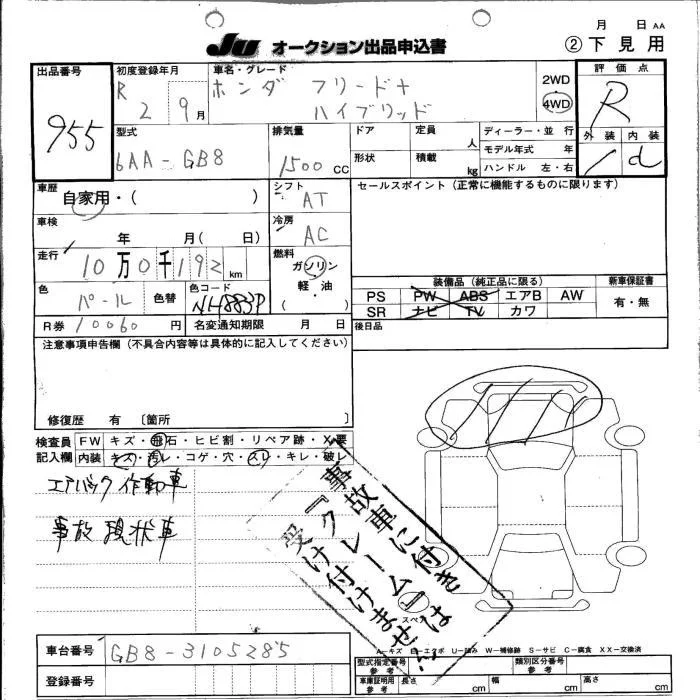 月 日 AA
JU オークション出品申込書
② 下見用
出品番号
955
初度登録年月
R 2 9月
車名・グレード
ホンダ フリード+
ハイブリッド
2WD
4WD
評価点
R
外装 内装
/ d
型式
6AA-GB8
排気量
1500 CC
ドア
定員
人
形状
積載
kg
ディーラー・並 行
モデル年式 年
ハンドル 左・右
車歴
自家用・( )
シフト
AT
セールスポイント(正常に機能するものに限ります)
車検
年 月( 日)
冷房
AC
走行
10万0千192 km
燃料
ガソリン・
軽油・
( )
色
パール
色替
色コード
NH883P
装備品(純正品に限る)
PS PW ABS エアB AW
SR ナビ TV カワ
新車保証書
有・無
R券 10060 円
名変通知期限 月 日
後日品
注意事項申告欄(不具合内容等は具体的に記入してください)
修復歴 有 〔箇所 〕
検査員記入欄
FW キズ・飛石・ヒビ割・リペア跡・X要
内装 キズ・汚レ・コゲ・穴・スリ・キレ・破レ
エアバック作動車
事故現状車
事故車に付き
『クレーム』は
受け付けません
スペア
A-キズ E-エクボ U-凹み W-補修跡 S-サビ C-腐食 XX-交換済
車台番号
GB8-3105285
登録番号
型式指定番号
参考
類別区分番号
参考
車庫証明用
参考
長さ cm
幅 cm
高さ cm